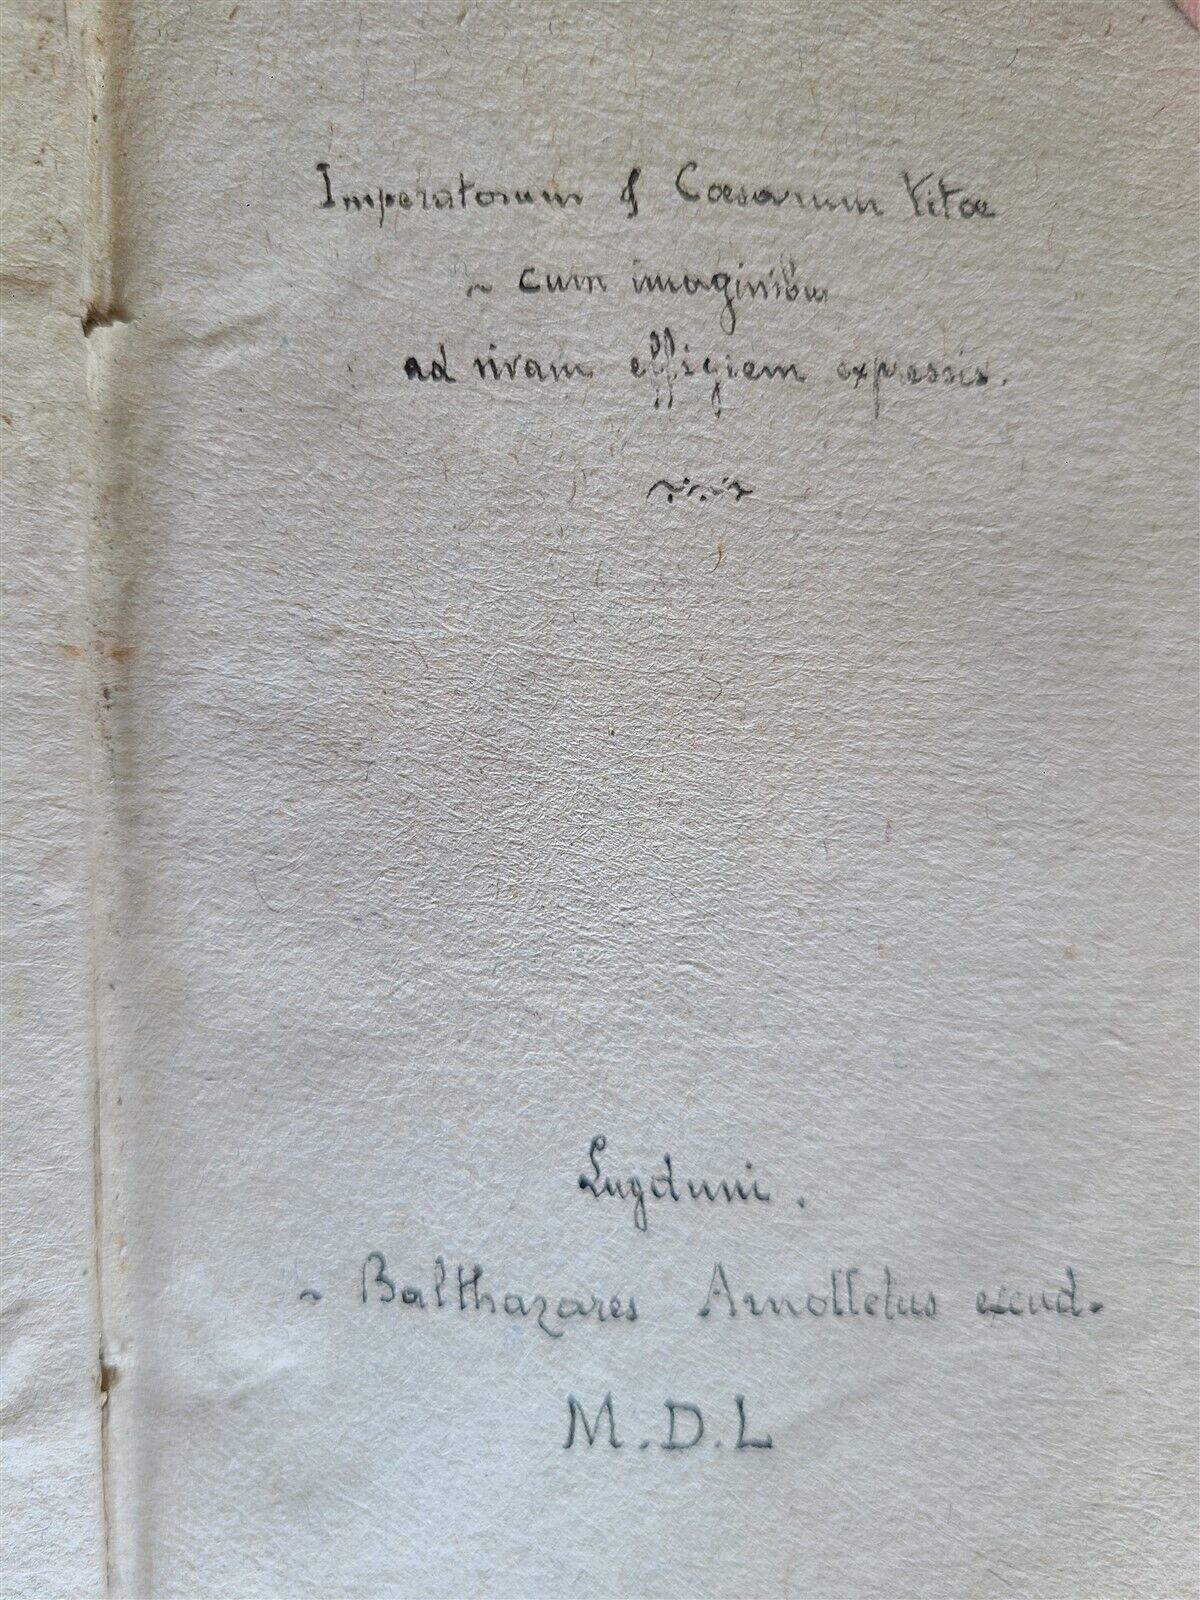 Imperatorum & Cæsarum Vitæ
~ cum imaginibus
ad vivam effigiem expressis.
Lugduni.
~ Balthazares Arnolletus excud.
M.D.L